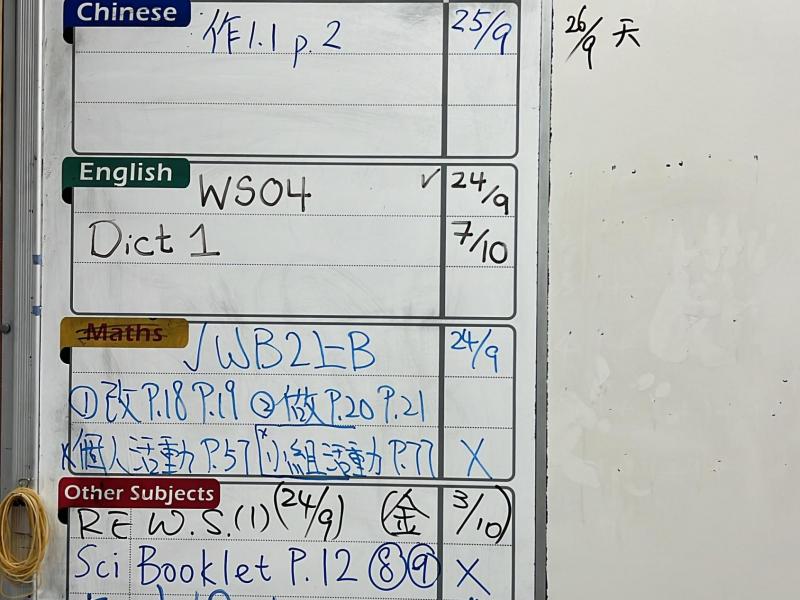 Chinese
作1.1 p.2 25/9
26/9 天
English
WS04 ✓ 24/9
Dict 1 7/10
Maths
√WB2上B 24/9
①改P.18 P.19 ②做P.20 P.21
x個人活動 P.57 x小組活動 P.77 X
Other Subjects
RE W.S.(1) (24/9) (金 3/10)
Sci Booklet P.12 ⑧⑨ X